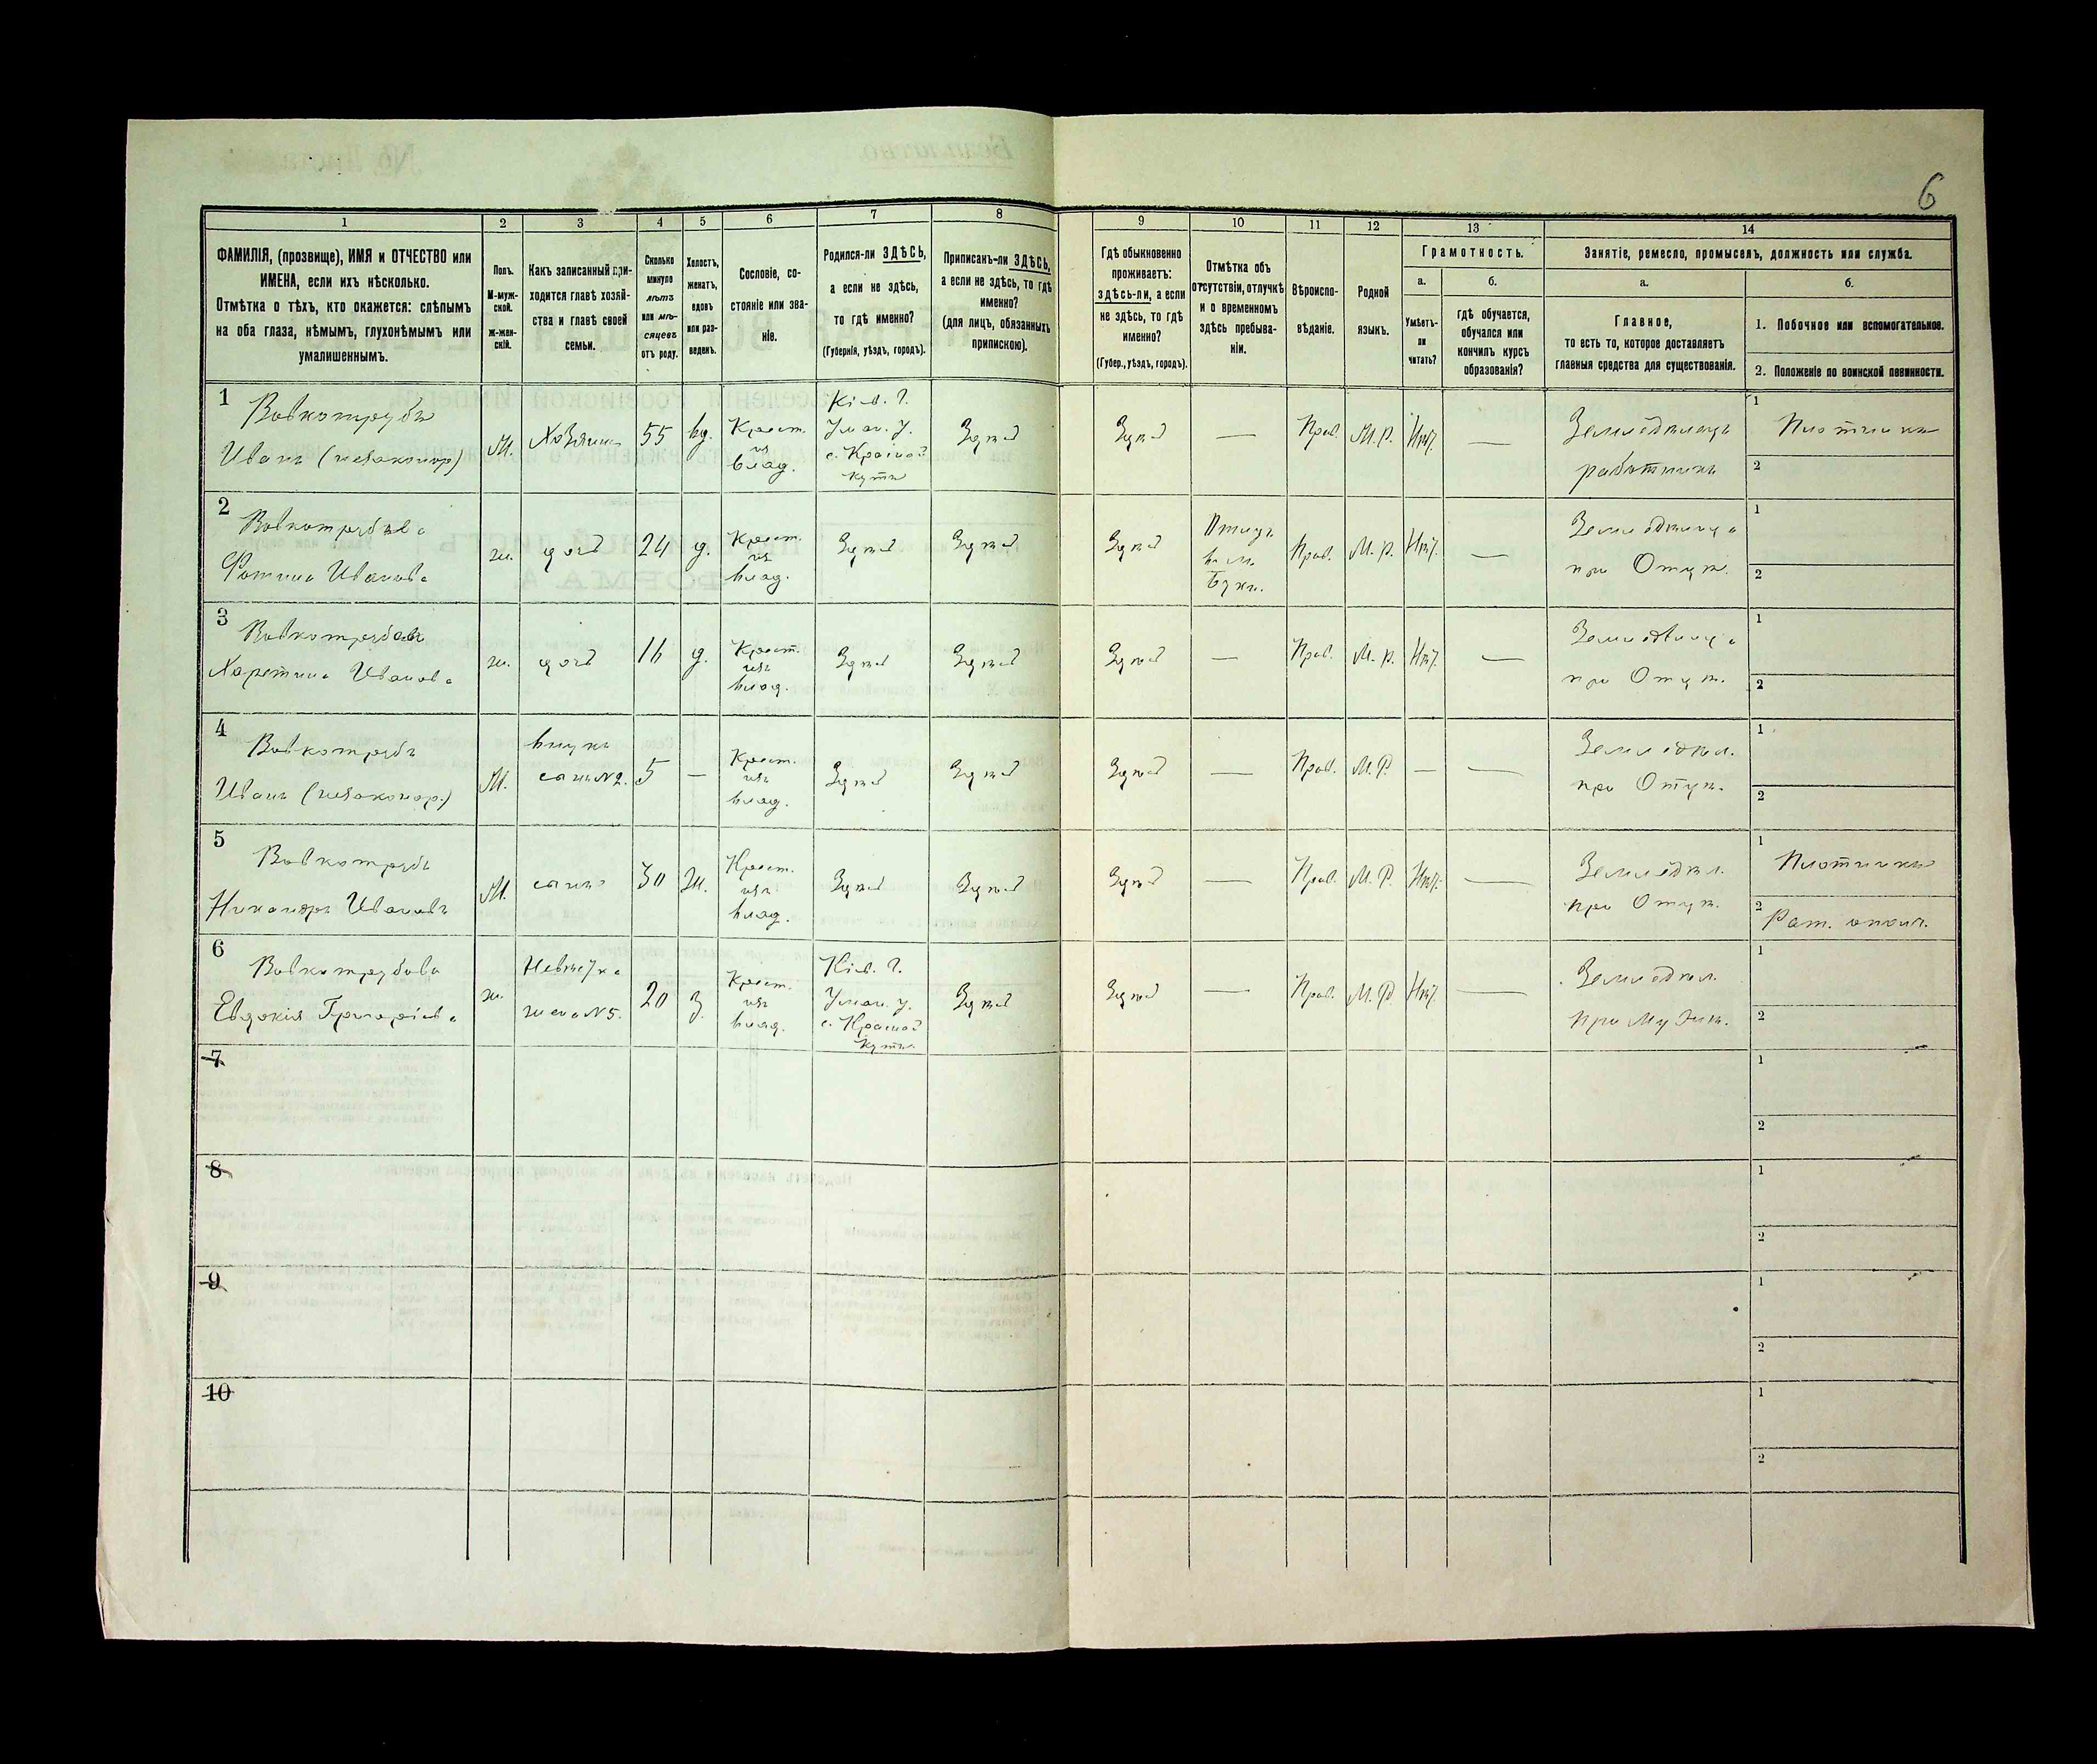 6
1
2
3
4
5
6
7
8
9
10
11
12
13
14
ФАМИЛІЯ, (прозвище), ИМЯ и ОТЧЕСТВО или
ИМЕНА, если ихъ нѣсколько.
Отмѣтка о тѣхъ, кто окажется: слѣпымъ
на оба глаза, нѣмымъ, глухонѣмымъ или
умалишеннымъ.
Полъ.
М-муж-
ской.
ж-жен-
скій.
Какъ записанный при-
ходится главѣ хозяй-
ства и главѣ своей
семьи.
Сколько
минуло
лѣтъ
или мѣ-
сяцевъ
отъ роду.
Холостъ,
женатъ,
вдовъ
или раз-
веденъ.
Сословіе, со-
стояніе или зва-
ніе.
Родился-ли ЗДѢСЬ,
а если не здѣсь,
то гдѣ именно?
(Губернія, уѣздъ, городъ).
Приписанъ-ли ЗДѢСЬ,
а если не здѣсь, то гдѣ
именно?
(для лицъ, обязанныхъ
припискою).
Гдѣ обыкновенно
проживаетъ:
здѣсь-ли, а если
не здѣсь, то гдѣ
именно?
(Губер., уѣздъ, городъ).
Отмѣтка объ
отсутствіи, отлучкѣ
и о временномъ
здѣсь пребыва-
ніи.
Вѣроиспо-
вѣданіе.
Родной
языкъ.
Грамотность.
а.
Умѣетъ-
ли
читать?
б.
гдѣ обучается,
обучался или
кончилъ курсъ
образованія?
Занятіе, ремесло, промыселъ, должность или служба.
а.
Главное,
то есть то, которое доставляетъ
главныя средства для существованія.
б.
1. Побочное или вспомогательное.
2. Положеніе по воинской повинности.
1
Вовкотрубъ
Иванъ (незаконор)
М.
Хозяинъ
55
вд.
Крест.
изъ
влад.
Кіев. Г.
Уман. у.
с. Красной
кутъ
Здѣсь
Здѣсь
—
Прав.
М. р.
Нѣт.
—
Земледѣлецъ
работникъ
1
Плотникъ
2
2
Вовкотрубова
Фотина Иванова
ж.
дочь
24
д.
Крест.
изъ
влад.
Здѣсь
Здѣсь
Здѣсь
Прав.
М. р.
Нѣт.
—
Земледѣлица
при Отцѣ.
1
2
3
Вовкотрубова
Харетина Иванова
ж.
дочь
16
д.
Крест.
изъ
влад.
Здѣсь
Здѣсь
Здѣсь
—
Прав.
М. р.
Нѣт.
—
Земледѣлица
при Отцѣ.
1
2
4
Вовкотрубъ
Иванъ (незаконор.)
М.
внукъ
сынъ №2.
5
—
Крест.
изъ
влад.
Здѣсь
Здѣсь
Здѣсь
—
Прав.
М. Р.
—
—
Земледѣл.
при Отцѣ.
1
2
5
Вовкотрубъ
Никаноръ Ивановъ
М.
сынъ
30
ж.
Крест.
изъ
влад.
Здѣсь
Здѣсь
Здѣсь
—
Прав.
М. Р.
Нѣт.
—
Земледѣл.
при Отцѣ.
1
Плотникъ
2
Рат. опол.
6
Вовкотрубова
Евдокія Григоріева
ж.
Невѣстка
жена №5.
20
з.
Крест.
изъ
влад.
Кіев. Г.
Уман. у.
с. Красной
Кутъ
Здѣсь
Здѣсь
—
Прав.
М. Р.
Нѣт.
—
Земледѣл.
при Мужѣ.
1
2
7
1
2
8
1
2
9
1
2
10
1
2